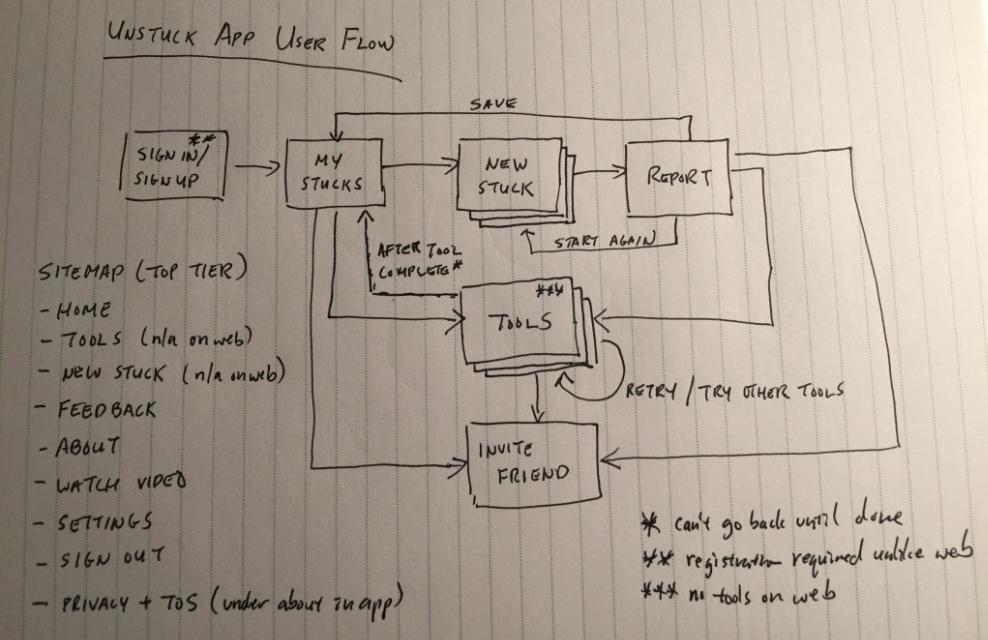 UNSTUCK APP USER FLOW
SAVE
**
SIGN IN/
SIGN UP
MY
STUCKS
NEW
STUCK
REPORT
START AGAIN
AFTER TOOL
COMPLETE*
***
TOOLS
RETRY / TRY OTHER TOOLS
INVITE
FRIEND
SITEMAP (TOP TIER)
- HOME
- TOOLS (n/a on web)
- NEW STUCK (n/a on web)
- FEEDBACK
- ABOUT
- WATCH VIDEO
- SETTINGS
- SIGN OUT
- PRIVACY + TOS (under about in app)
* can't go back until done
** registration required unlike web
*** no tools on web